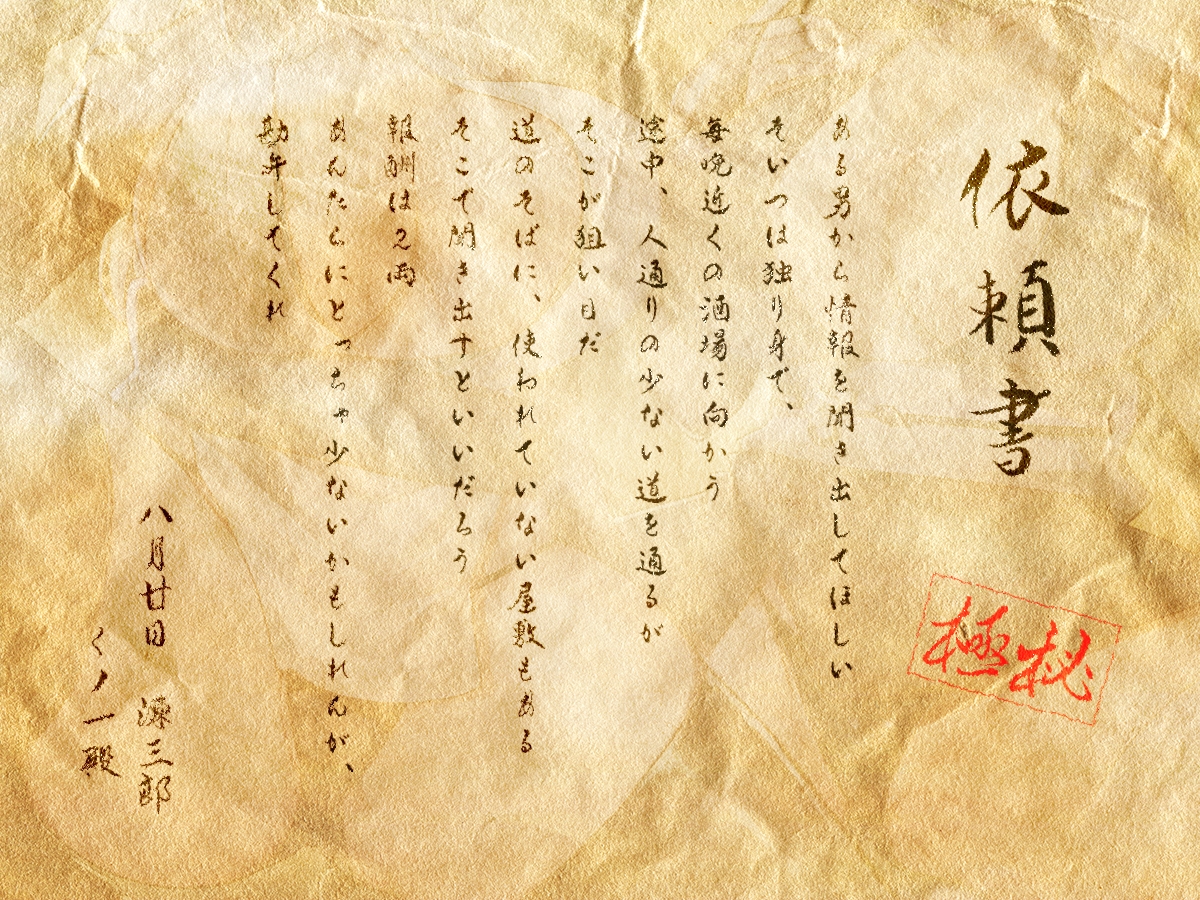 依頼書
極秘
ある男から情報を聞き出してほしい
そいつは独り身で、
毎晩近くの酒場に向かう
途中、人通りの少ない道を通るが
そこが狙い目だ
道のそばに、使われていない屋敷もある
そこで聞き出すといいだろう
報酬は2両
あんたらにとっちゃ少ないかもしれんが、
勘弁してくれ
八月廿日 源三郎
くノ一殿